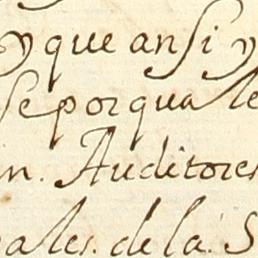 y que ansi y
se por quale
in. Auditores
ales. de la. S